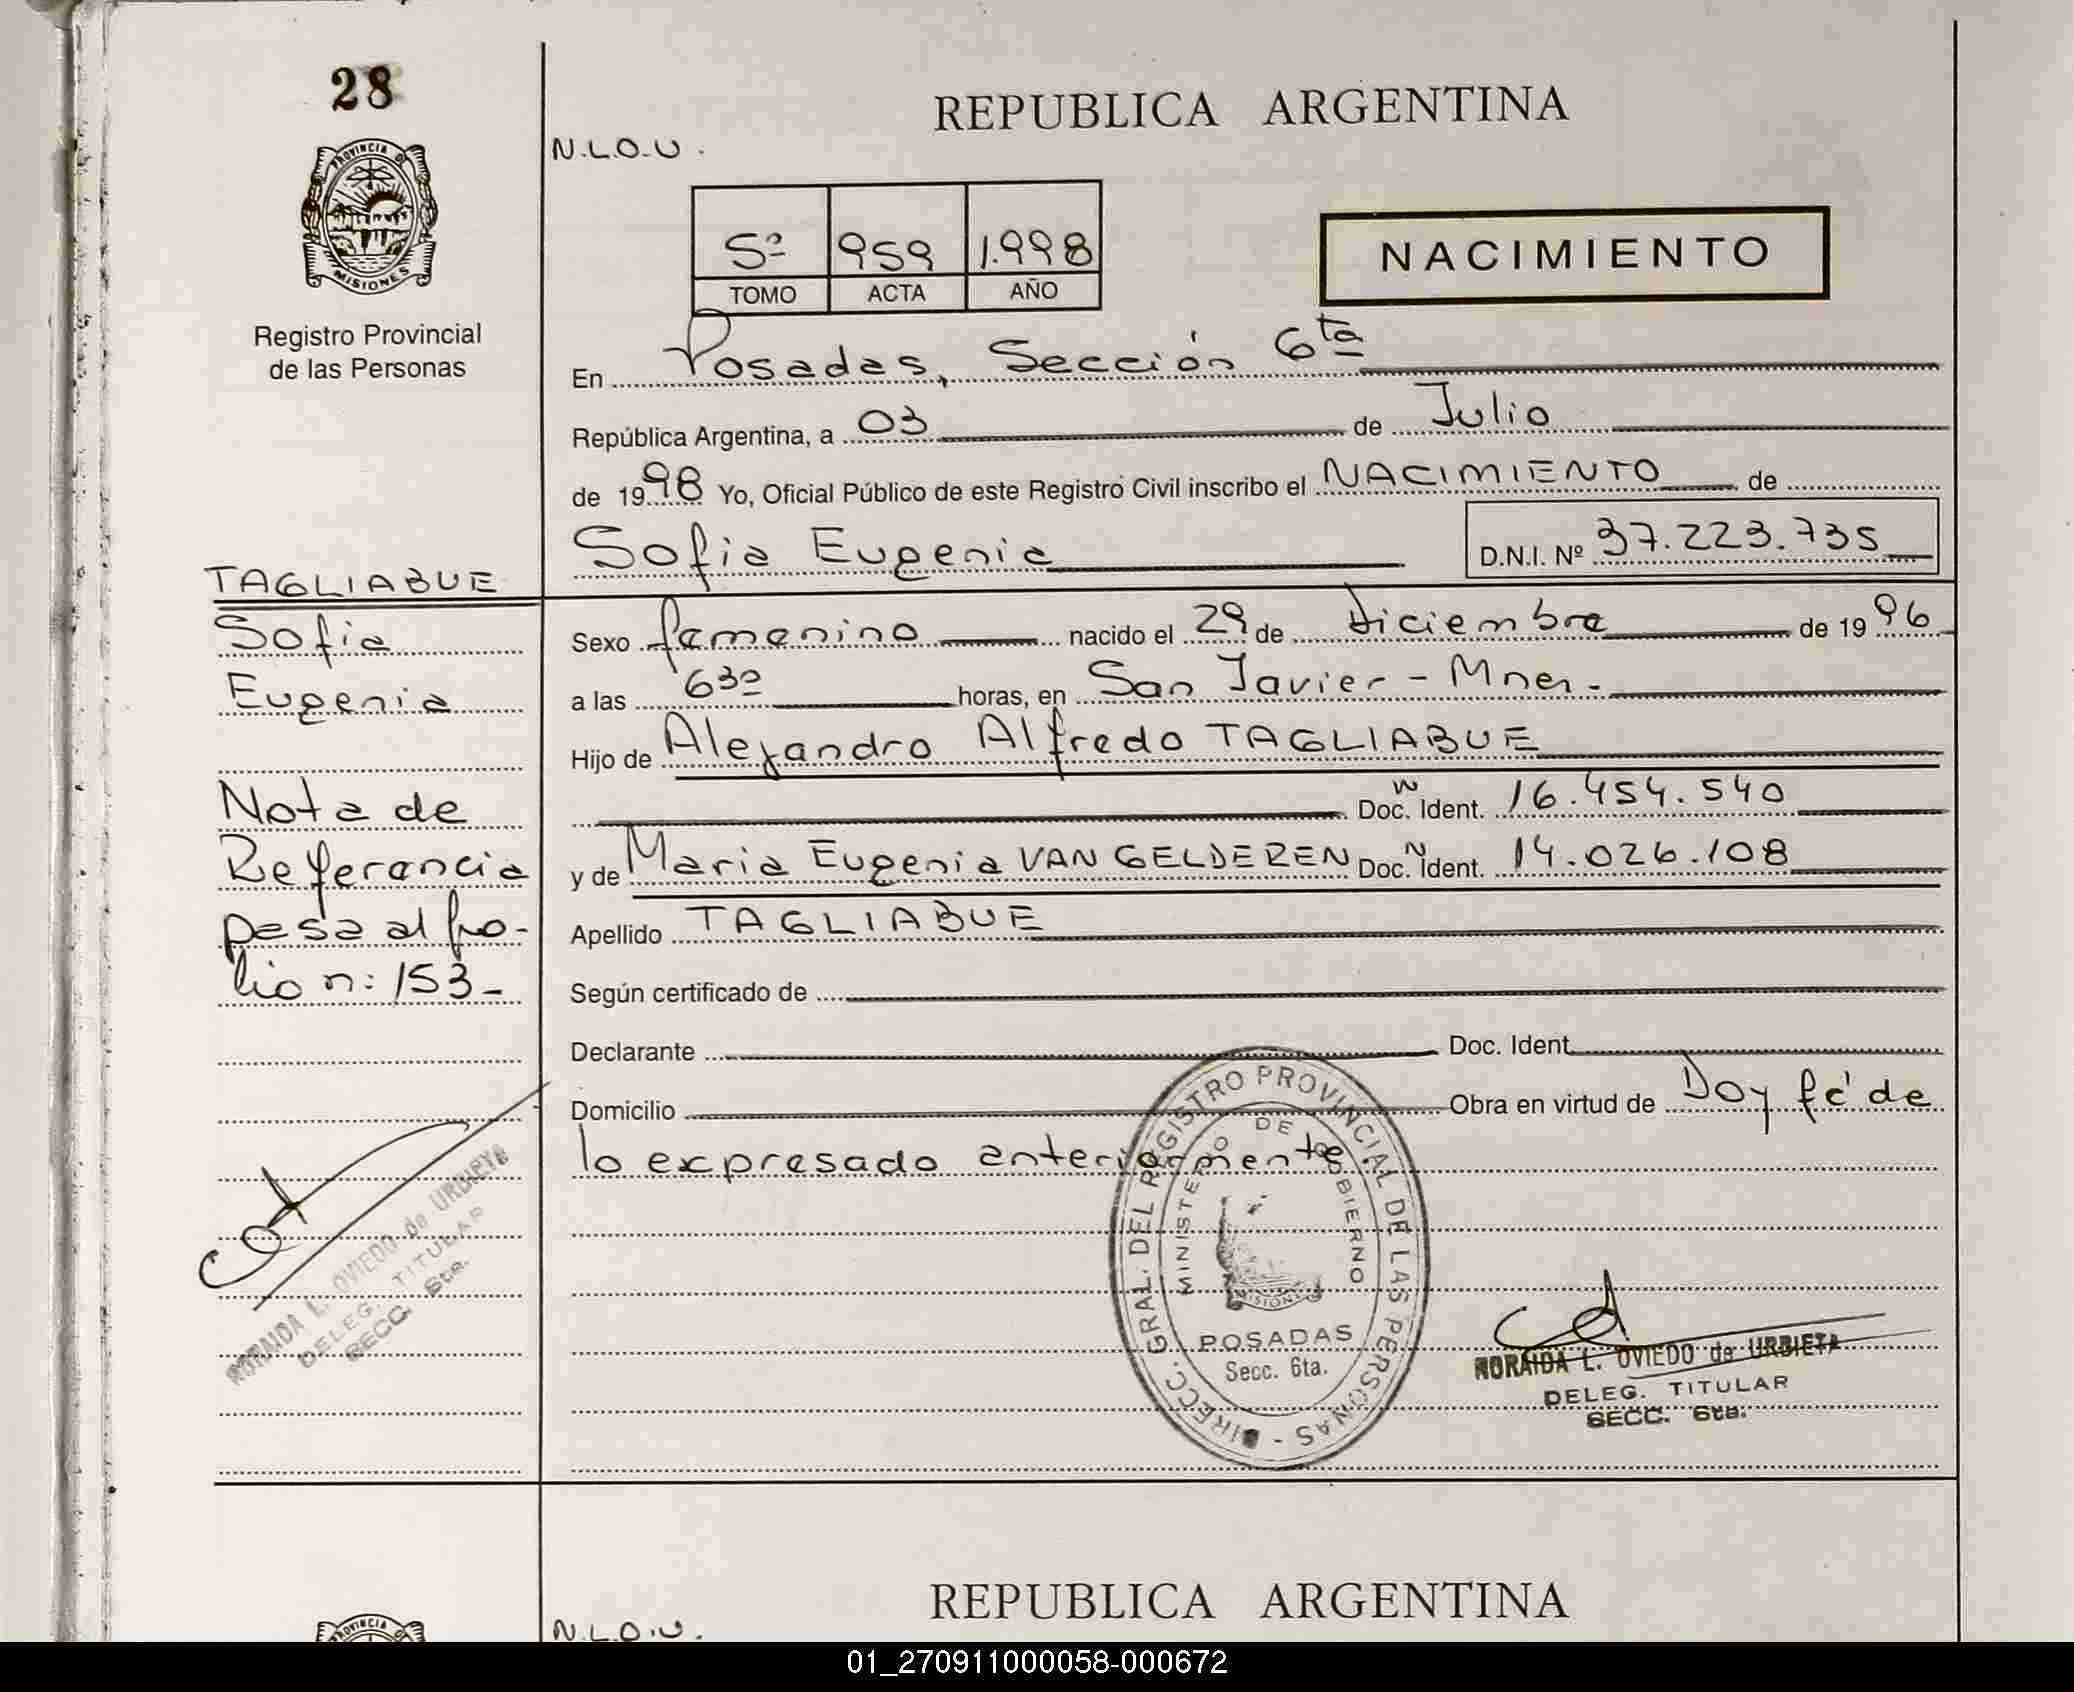 28
PROVINCIA DE
MISIONES
Registro Provincial
de las Personas
REPUBLICA ARGENTINA
N.L.O.U.
5º 959 1.998
TOMO ACTA AÑO
NACIMIENTO
En Posadas, Sección 6ta
República Argentina, a 03 de Julio
de 1998 Yo, Oficial Público de este Registro Civil inscribo el NACIMIENTO de
Sofia Eugenia D.N.I. Nº 37.223.735
TAGLIABUE
Sofia
Eugenia
Nota de
Referencia
pasa al fo-
lio n: 153-
NORAIDA L. OVIEDO de URBIETA
DELEG. TITULAR
SECC. 6ta.
Sexo femenino nacido el 29 de diciembre de 1996
a las 630 horas, en San Javier - Mnes.
Hijo de Alejandro Alfredo TAGLIABUE
Doc. Ident. 16.454.540
y de Maria Eugenia VAN GELDEREN Doc. Ident. 14.026.108
Apellido TAGLIABUE
Según certificado de
Declarante Doc. Ident.
Domicilio Obra en virtud de Doy fé de
lo expresado anteriormente
DIRECC. GRAL. DEL REGISTRO PROVINCIAL DE LAS PERSONAS -
MINISTERIO DE GOBIERNO
MISIONES
POSADAS
Secc. 6ta.
NORAIDA L. OVIEDO de URBIETA
DELEG. TITULAR
SECC. 6ta.
REPUBLICA ARGENTINA
PROVINCIA DE
N.L.O.U.
01_270911000058-000672